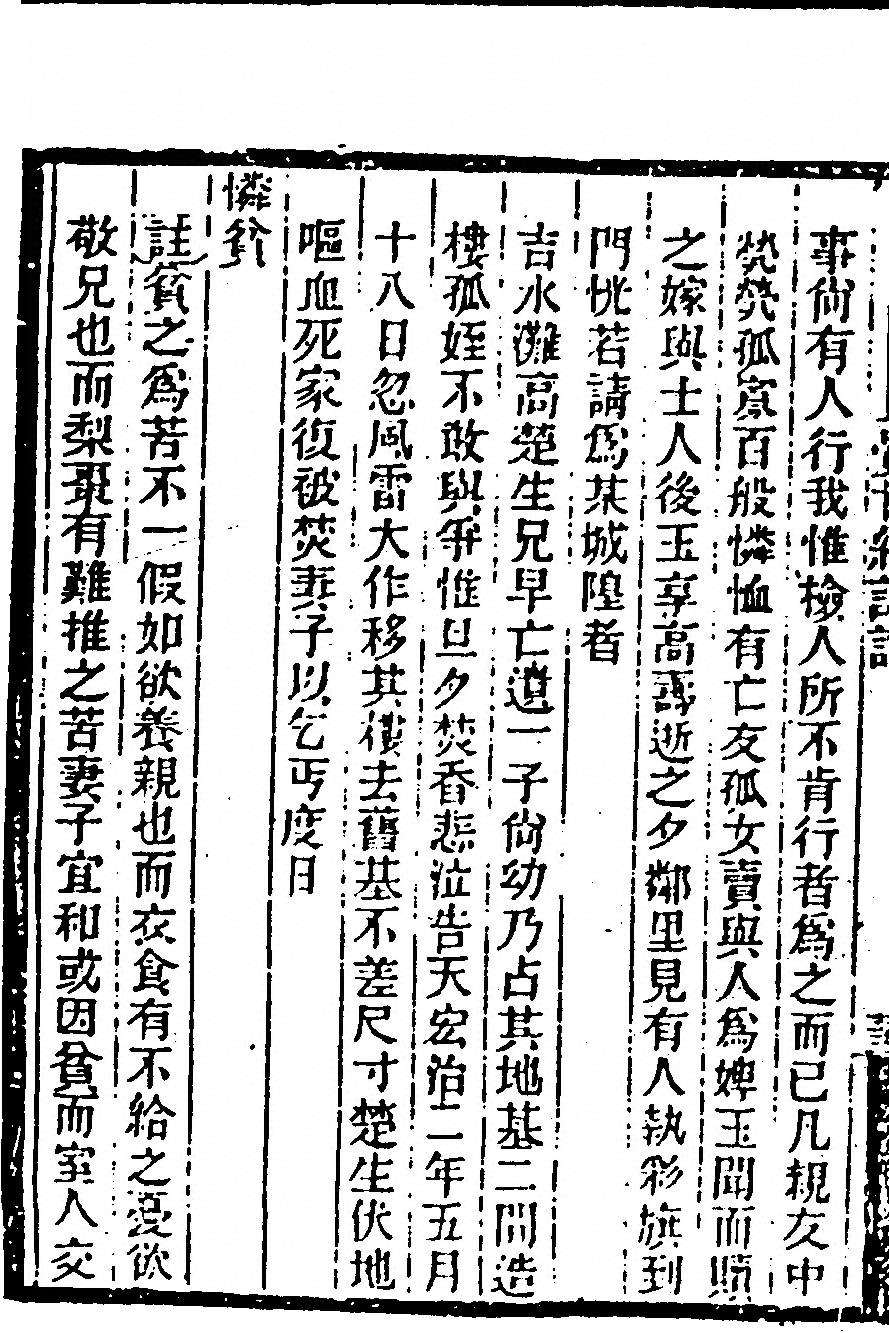 事尙有人行我惟檢人所不肯行者爲之而已凡親友中
煢煢孤寡百般憐恤有亡友孤女賣與人爲婢玉聞而贖
之嫁與士人後玉享高壽逝之夕鄰里見有人執彩旗到
門恍若請爲某城隍者
吉水灘高楚生兄早亡遺一子尙幼乃占其地基二間造
樓孤姪不敢與爭惟旦夕焚香悲泣告天宏治二年五月
十八日忽風雷大作移其樓去舊基不差尺寸楚生伏地
嘔血死家復被焚妻子以乞丐度日
憐貧
註貧之爲苦不一假如欲養親也而衣食有不給之憂欲
敬兄也而梨棗有難推之苦妻子宜和或因貧而室人交